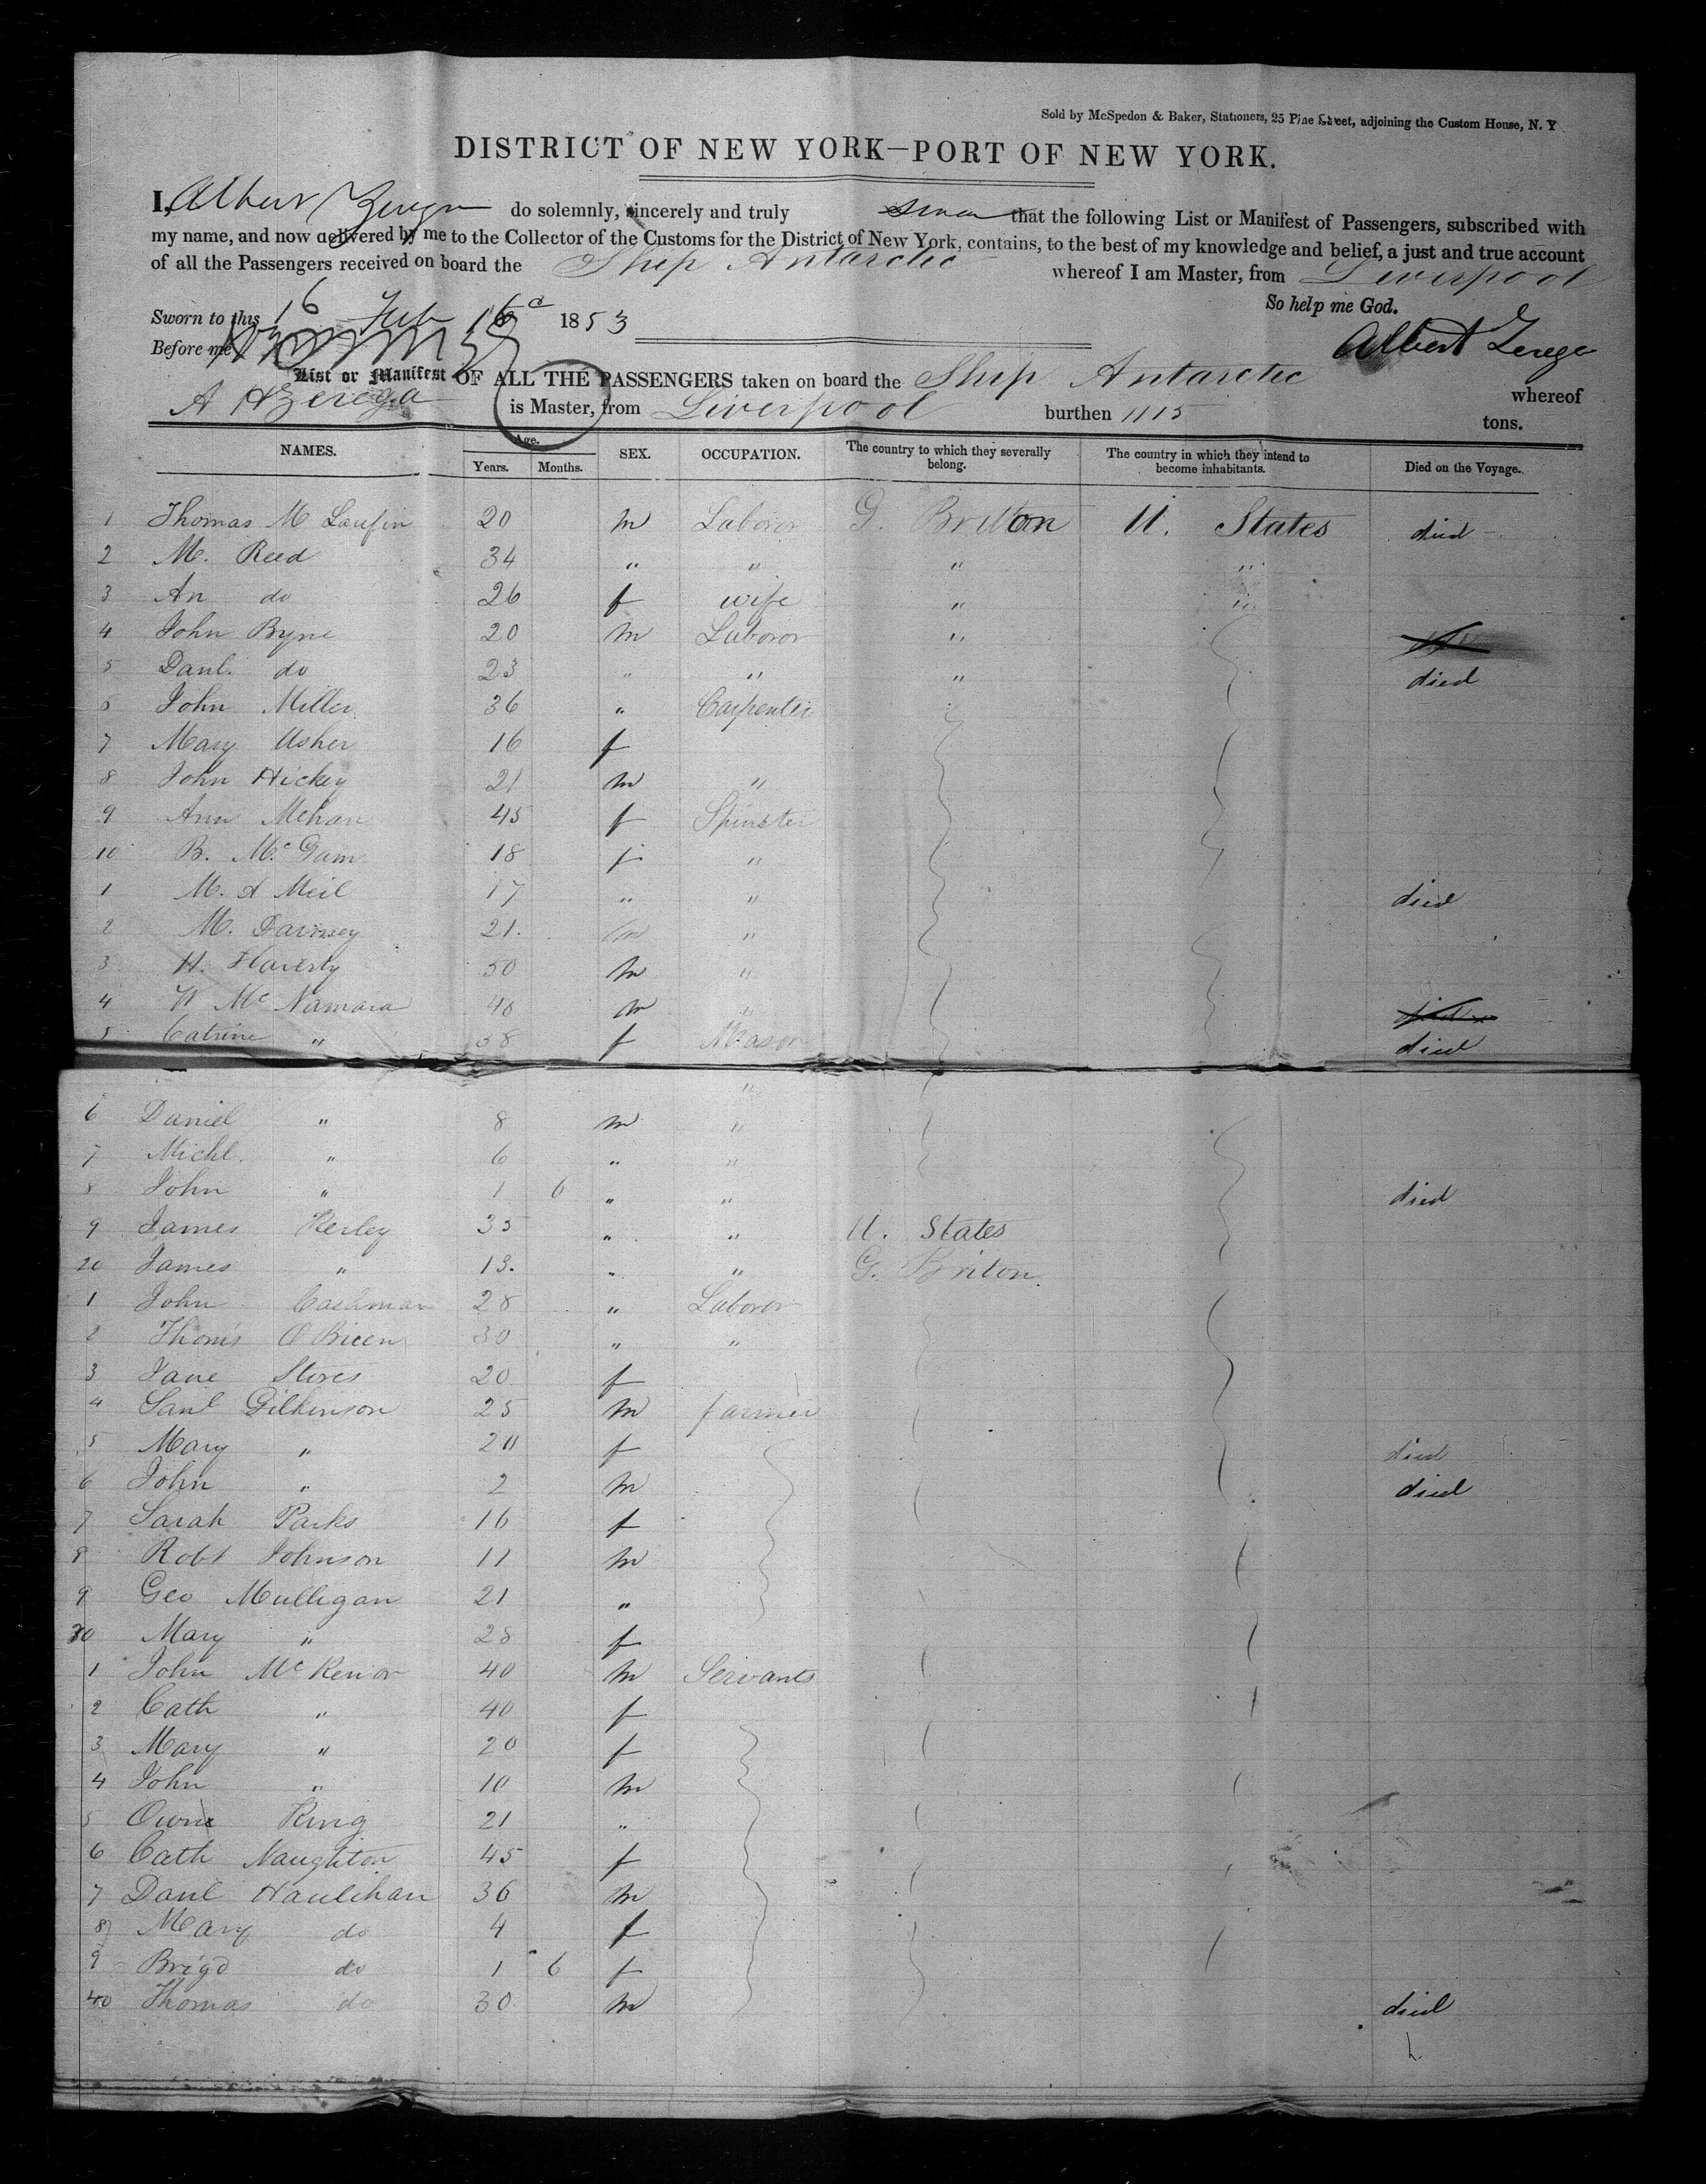 Sold by McSpedon & Baker, Stationers, 25 Pine Street, adjoining the Custom House, N. Y
DISTRICT OF NEW YORK—PORT OF NEW YORK.
I, Albert Zerega do solemnly, sincerely and truly swear that the following List or Manifest of Passengers, subscribed with
my name, and now delivered by me to the Collector of the Customs for the District of New York, contains, to the best of my knowledge and belief, a just and true account
of all the Passengers received on board the Ship Antarctic whereof I am Master, from Liverpool
So help me God.
Sworn to this 16 Feb 16 1853
Albert Zerega
Before me
List or Manifest OF ALL THE PASSENGERS taken on board the Ship Antarctic whereof
A Zerega is Master, from Liverpool burthen 1115 tons.
NAMES. Age. Years. Months. SEX. OCCUPATION. The country to which they severally belong. The country in which they intend to become inhabitants. Died on the Voyage.
1 Thomas M 20 m Laboror G. Britton U. States died
2 M. Reed 34 " " " "
3 An do 26 f wife " "
4 John Byne 20 m Laboror "
5 Danl. do 23 " " " died
6 John Miller 36 " Carpenter
7 Mary Usher 16 f
8 John Hickey 21 m "
9 Ann Mehan 45 f Spinster
10 B. Mc Gam 18 f "
1 M. A Meil 17 " " died
2 M. 21. "
3 H. Haverty 50 m "
4 Mc Namara 40 m " died
5 Catrine " 38 f Mason died
6 Daniel " 8 m "
7 Michl. " 6 " "
8 John " 1 6 " " died
9 James Kerley 35 " " U. States
20 James " 13. " " G. Briton.
1 John Cashman 28 " Laboror
2 Thoms O Brien 30 " "
3 Jane Stores 20 f
4 Saml Gilkinson 25 m farmer
5 Mary " 20 f died
6 John " 2 m died
7 Sarah Parks 16 f
8 Robt Johnson 11 m
9 Geo Mulligan 21 "
30 Mary " 28 f
1 John Mc Kenior 40 m Servants
2 Cath " 40 f
3 Mary " 20 f
4 John " 10 m
5 King 21 "
6 Cath Naughton 45 f
7 Danl Haulihan 36 m
8 Mary do 4 f
9 Brigd do 1 6 f
40 Thomas do 30 m died